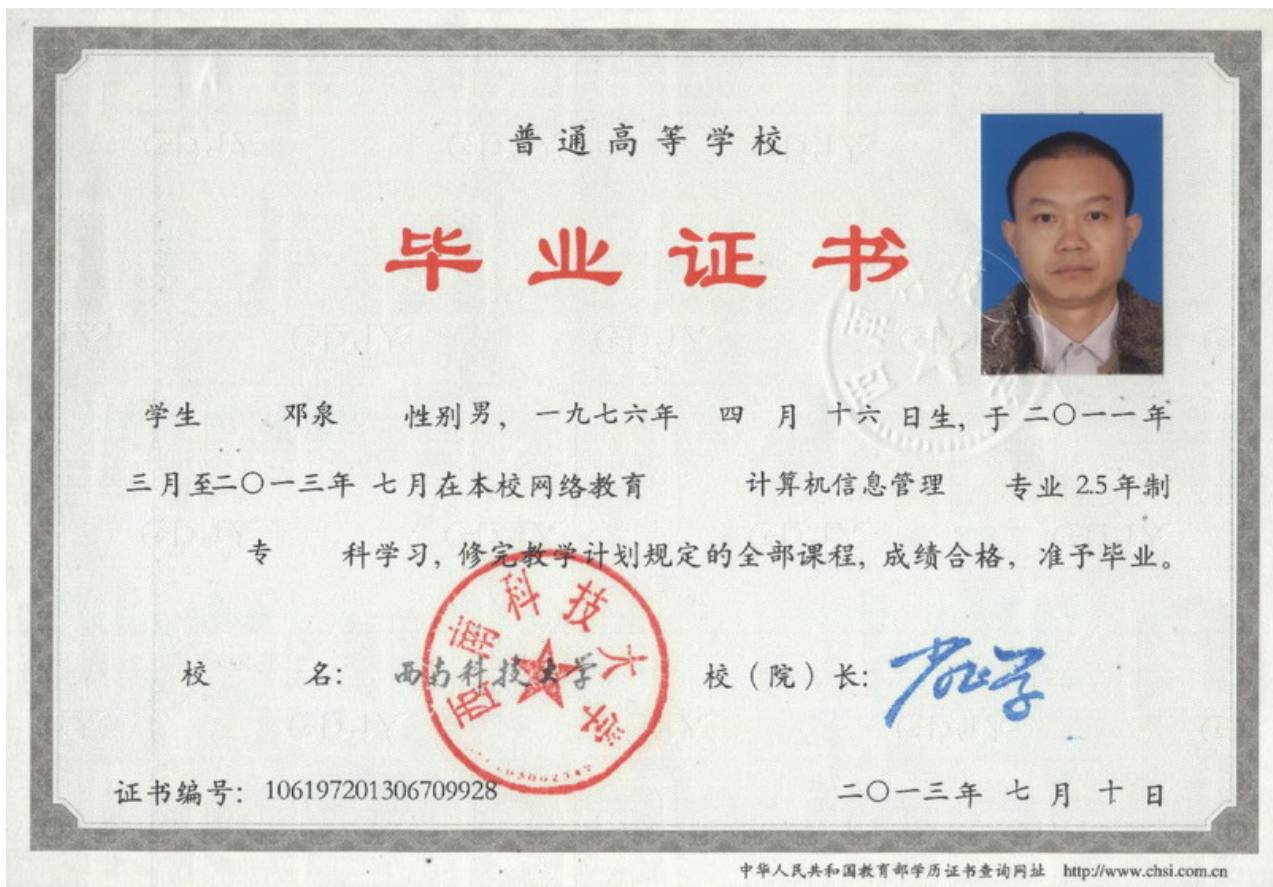 普通高等学校
毕业证书
学生 邓泉 性别男，一九七六年 四 月 十六 日生，于二〇一一年
三月至二〇一三年 七月在本校网络教育 计算机信息管理 专业 2.5年制
专 科学习，修完教学计划规定的全部课程，成绩合格，准予毕业。
校 名： 西南科技大学 校（院）长：
西南科技大学
证书编号：106197201306709928 二〇一三年 七 月 十 日
中华人民共和国教育部学历证书查询网址 http://www.chsi.com.cn